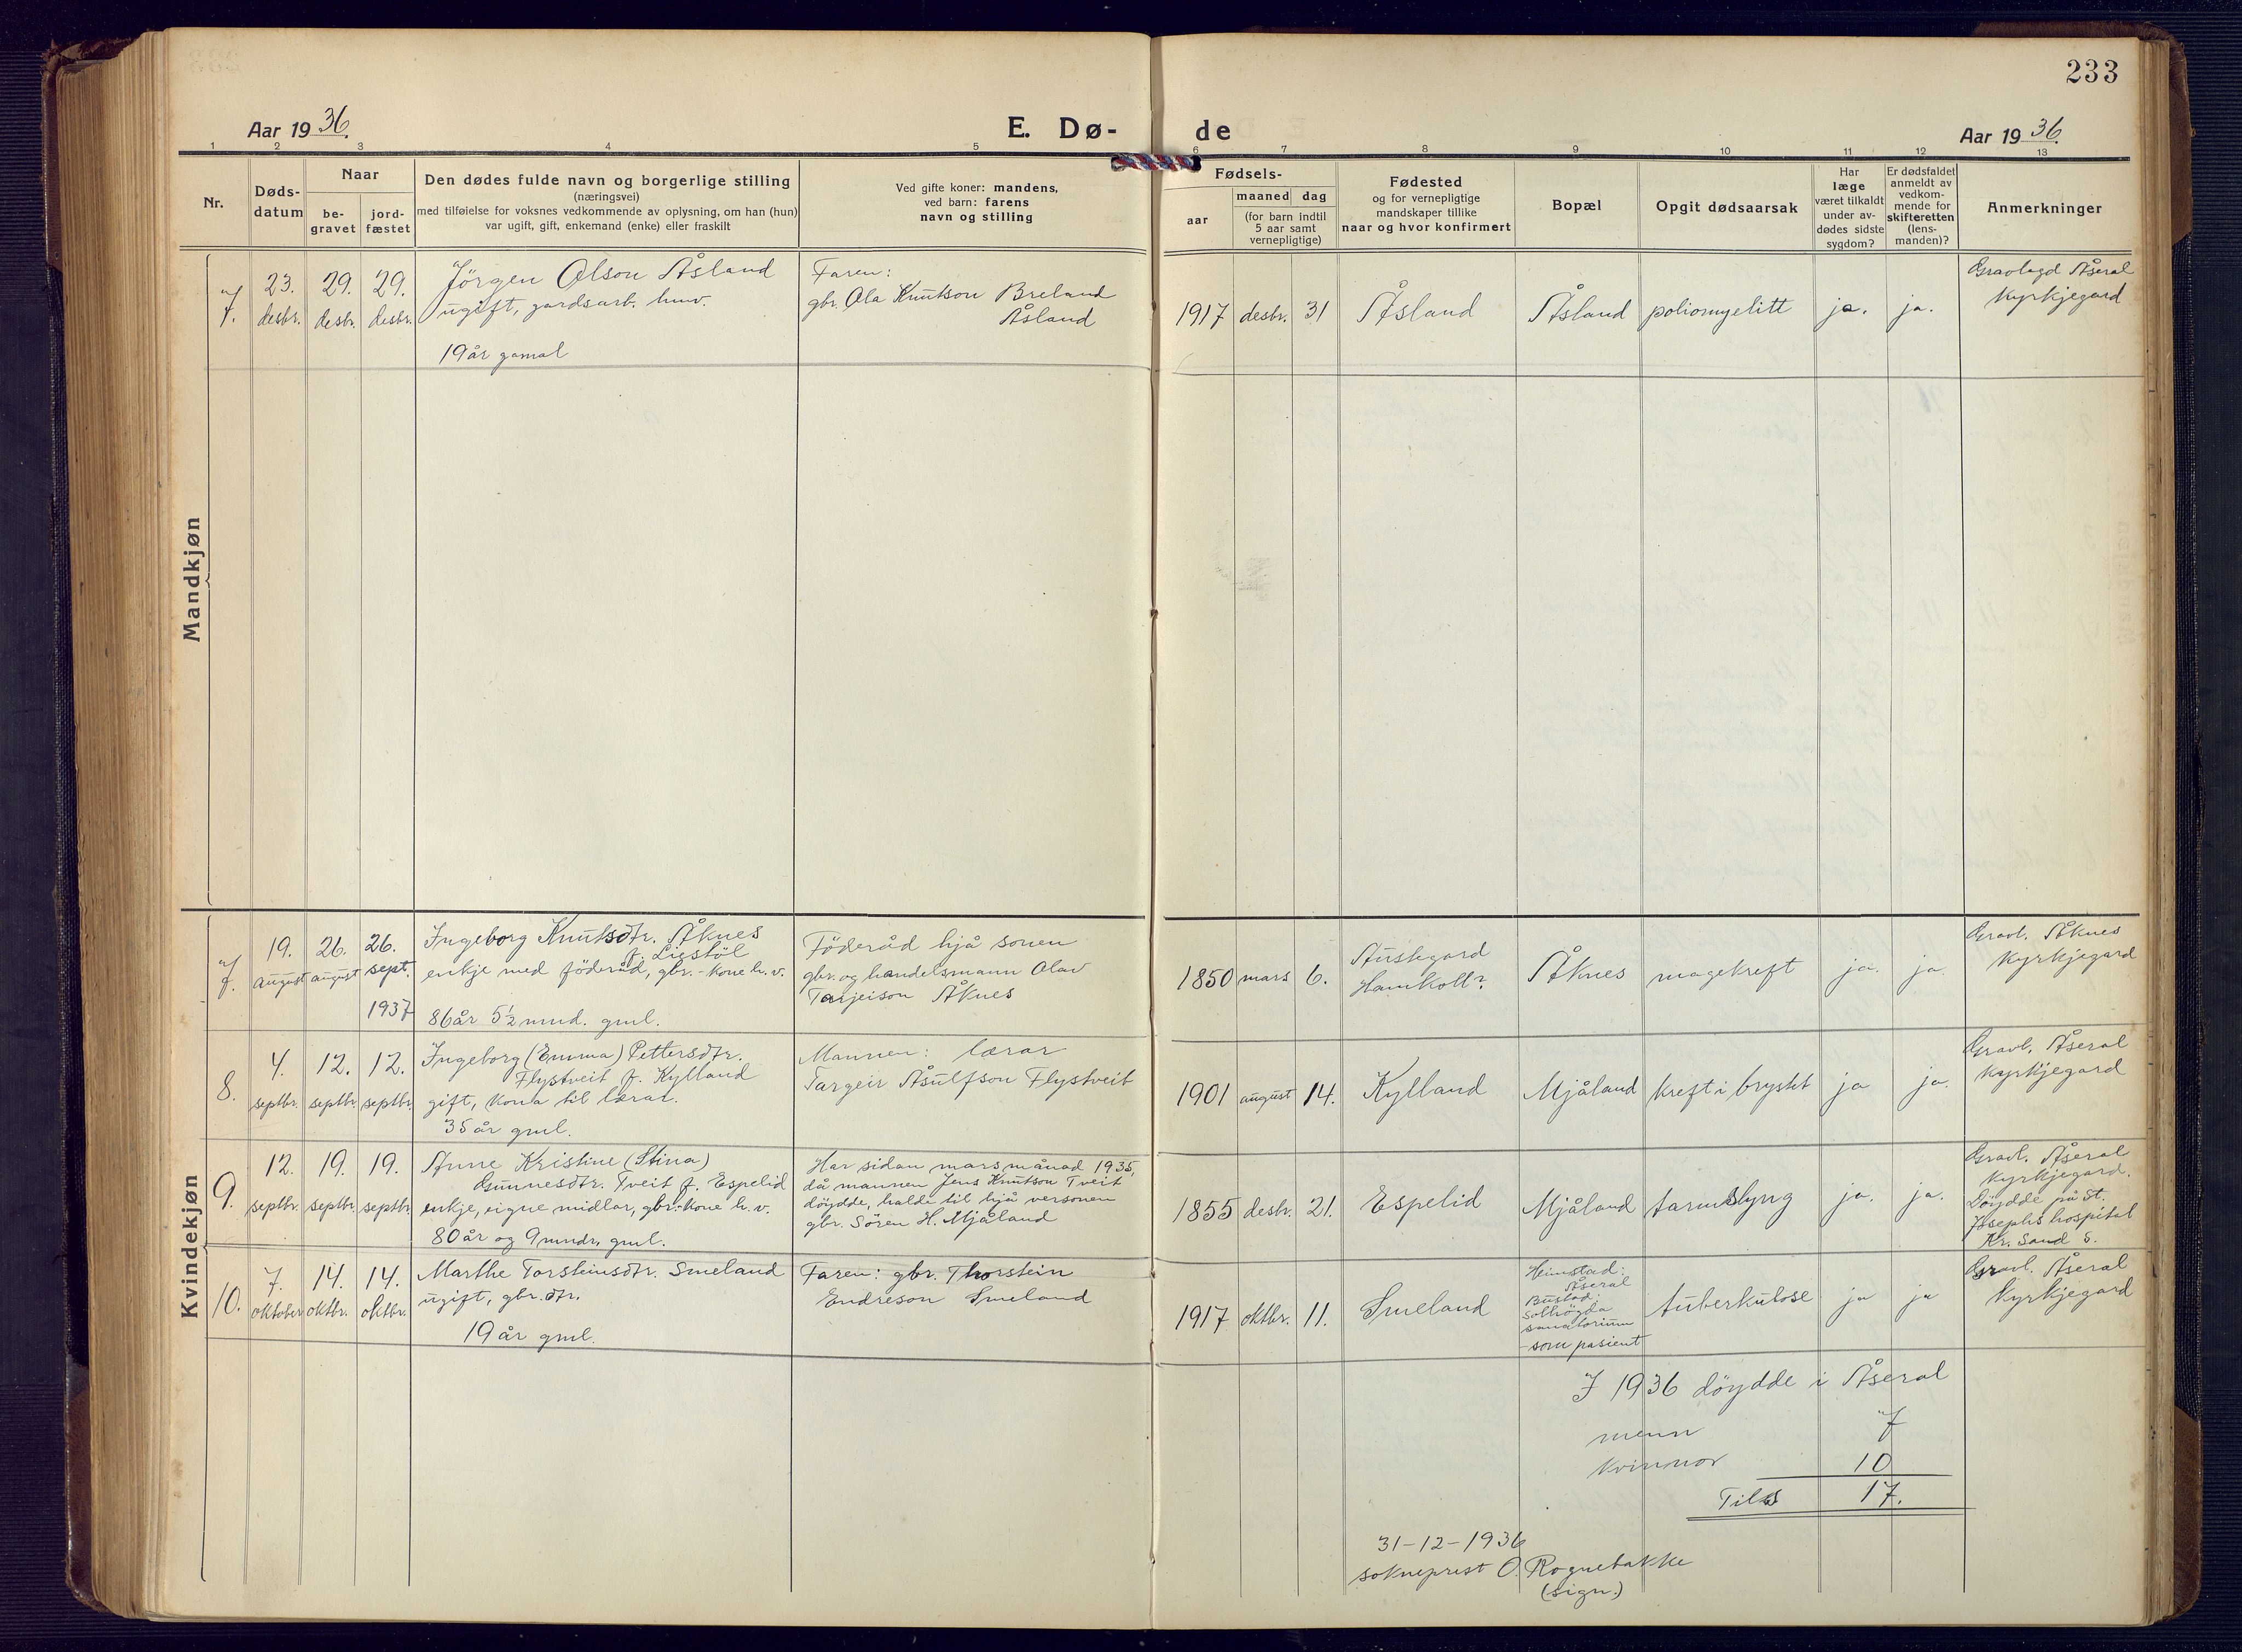 233
Aar 1936.
E. Dø-
de
Aar 1936.
1 2 3 4 5 6 7 8 9 10 11 12 13
Nr.
Døds-
datum
Naar
be-
gravet
jord-
fæstet
Den dødes fulde navn og borgerlige stilling
(næringsvei)
med tilføielse for voksnes vedkommende av oplysning, om han (hun)
var ugift, gift, enkemand (enke) eller fraskilt
Ved gifte koner: mandens,
ved barn: farens
navn og stilling
Fødsels-
aar
maaned
dag
(for barn indtil
5 aar samt
vernepligtige)
Fødested
og for vernepligtige
mandskaper tillike
naar og hvor konfirmert
Bopæl
Opgit dødsaarsak
Har
læge
været tilkaldt
under av-
dødes sidste
sygdom?
Er dødsfaldet
anmeldt av
vedkom-
mende for
skifteretten
(lens-
manden)?
Anmerkninger
Mandkjøn
7.
23.
desbr.
29.
desbr.
29.
desbr.
Jørgen Olson Åsland
ugift, gardsarb. hmv.
19 år gamal
Faren:
gbr. Ola Knutson Breland
Åsland
1917 desbr. 31
Åsland
Åsland
poliomyelitt
ja.
ja.
Gravlagd Åseral
Kyrkjegard
Kvindekjøn
7.
19.
august
26.
august
26.
sept.
1937
Ingeborg Knutsdtr. Åknes
f. Liestöl
enkje med föderåd, gbr.-kone h.v.
86 år 5½ mnd. gml.
Föderåd hjå sonen
gbr. og handelsmann Olav
Tarjeison Åknes
1850 mars 6.
Austegard
Hamkoll?
Åknes
magekreft
ja.
ja.
Gravl. Åknes
Kyrkjegard
8.
4.
septbr.
12.
septbr.
12.
septbr.
Ingeborg (Emma) Pettersdtr.
Flystveit f. Kylland
gift, kona til lærar.
35 år gml.
Mannen: lærar
Targeir Åsulfson Flystveit
1901 august 14.
Kylland
Mjåland
kreft i bryskt
ja
ja.
Gravl. Åseral
Kyrkjegard
9.
12.
septbr.
19.
septbr.
19.
septbr.
Anne Kristine (Stina)
Gunnesdtr. Tveit f. Espelid
enkje, eigne midlar, gbr.-kone h.v.
80 år og 9 mndr. gml.
Har sidan mars månad 1935,
då mannen Jens Knutson Tveit
döydde, halde til hjå versonen
gbr. Sören H. Mjåland
1855 desbr. 21.
Espelid
Mjåland
tarmslyng
ja.
ja.
Gravl. Åseral
Kyrkjegard.
Döydde på St.
Josephs hospital
Kr. Sand S.
10.
7.
oktober
14.
oktbr.
14.
oktbr.
Marthe Torsteinsdtr. Smeland
ugift, gbr. dtr.
19 år gml.
Faren: gbr. Thorstein
Endreson Smeland
1917 oktbr. 11.
Smeland
Heimstad:
Åseral
Bustad:
Solhögda
sanatorium
som pasient
tuberkulose
ja
ja
Gravl. Åseral
Kyrkjegard
I 1936 döydde i Åseral
menn 7
kvinnor 10
Tils 17.
31-12-1936
sokneprest O. Rognebakke
(sign.)